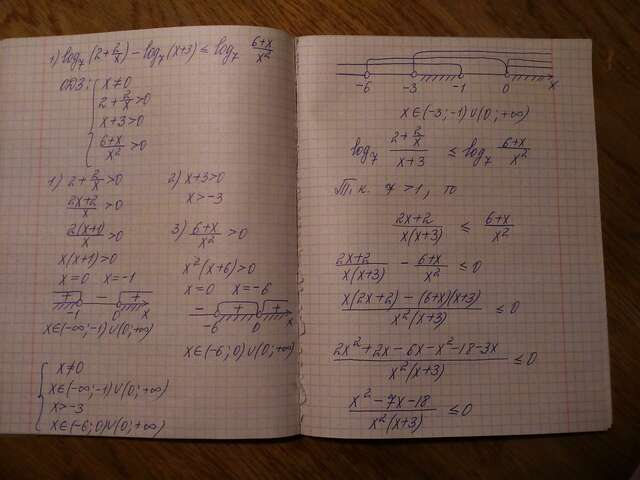 1) log₇(2+2/x) − log₇(x+3) ≤ log₇ (6+x)/x²
ОДЗ: { x≠0
2+2/x>0
x+3>0
(6+x)/x²>0
1) 2+2/x>0
(2x+2)/x>0
2(x+1)/x>0
x(x+1)>0
x=0 x=-1
+ − +
-1 0 x
x∈(-∞;-1)∪(0;+∞)
2) x+3>0
x>-3
3) (6+x)/x²>0
x²(x+6)>0
x=0 x=-6
− + +
-6 0 x
x∈(-6;0)∪(0;+∞)
{ x≠0
x∈(-∞;-1)∪(0;+∞)
x>-3
x∈(-6;0)∪(0;+∞)
-6 -3 -1 0 x
x∈(-3;-1)∪(0;+∞)
log₇ (2+2/x)/(x+3) ≤ log₇ (6+x)/x²
Т.к. 7>1, то
(2x+2)/(x(x+3)) ≤ (6+x)/x²
(2x+2)/(x(x+3)) − (6+x)/x² ≤0
(x(2x+2)−(6+x)(x+3))/(x²(x+3)) ≤0
(2x²+2x−6x−x²−18−3x)/(x²(x+3)) ≤0
(x²−7x−18)/(x²(x+3)) ≤0